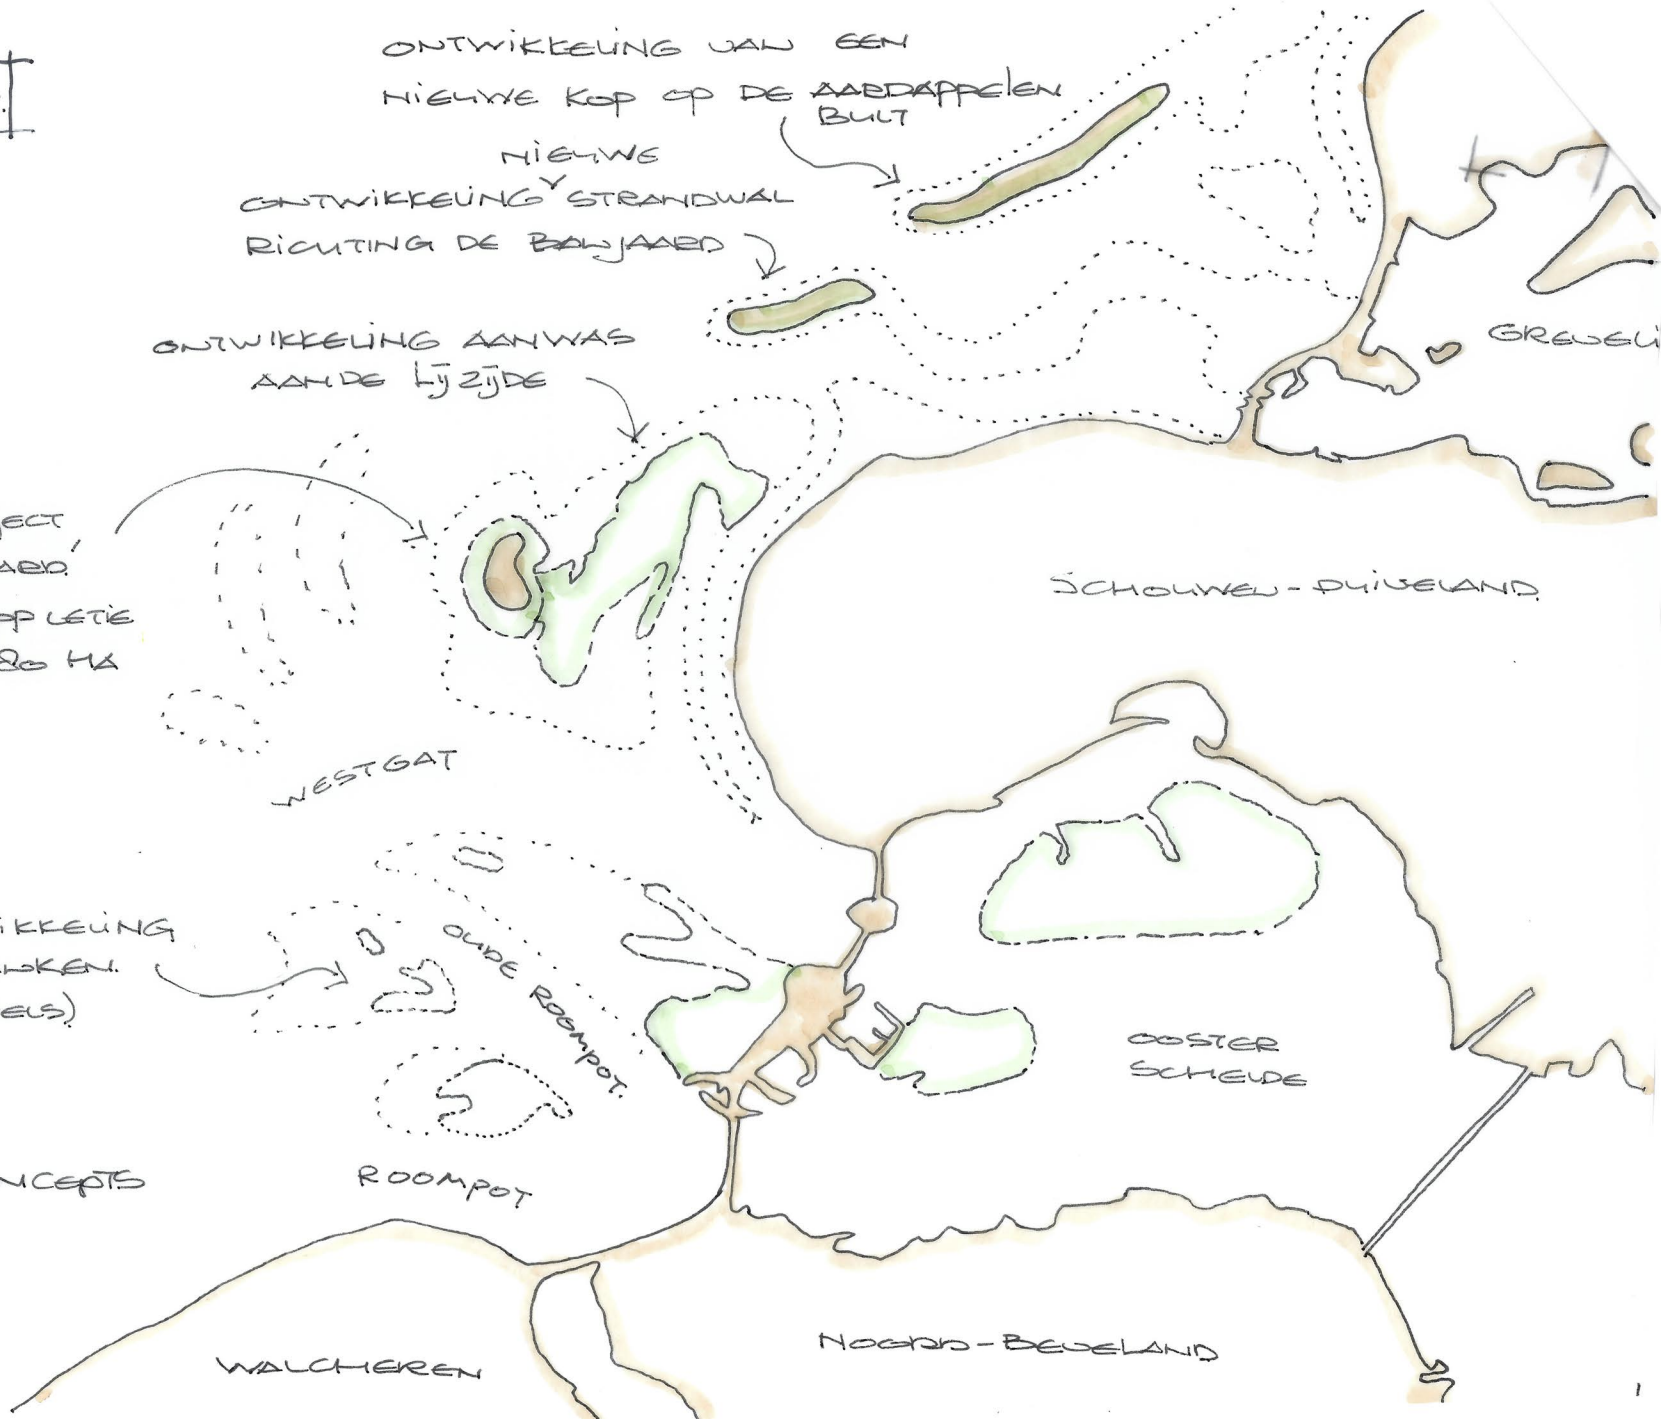 ONTWIKKELING VAN EEN
NIEUWE KOP OP DE AARDAPPELEN
BULT
NIEUWE
ONTWIKKELING STRANDWAL
RICHTING DE BANJAARD
ONTWIKKELING AANWAS
AAN DE LIJZIJDE
GREVELI
JECT
AARD'
OPLETIE
80 HA
SCHOUWEN-DUIVELAND
WESTGAT
IKKELING
NKEN.
ELS)
OUDE ROOMPOT.
OOSTER
SCHELDE
NCEPTS
ROOMPOT
WALCHEREN
NOORD-BEVELAND